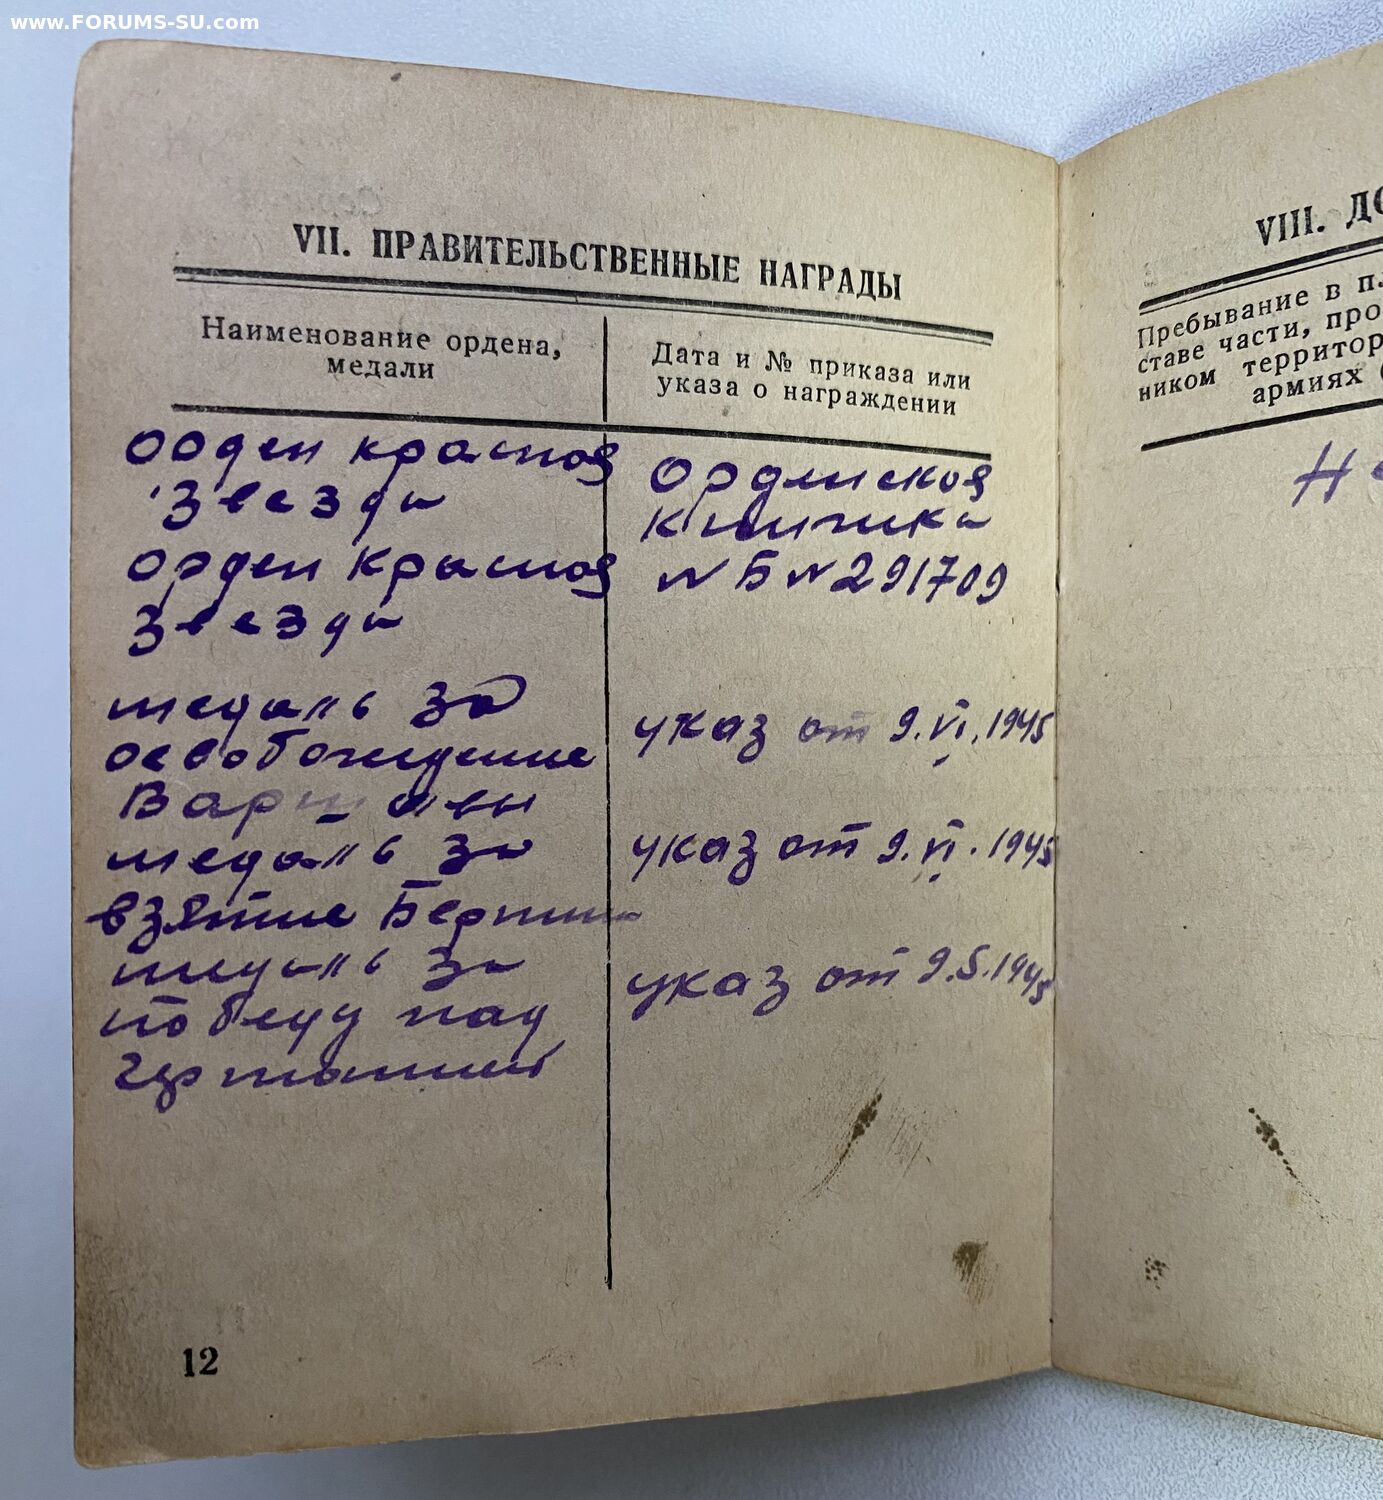 www.FORUMS-SU.com
VII. ПРАВИТЕЛЬСТВЕННЫЕ НАГРАДЫ
Наименование ордена,
медали
Дата и № приказа или
указа о награждении
орден красной
Звезды
орден Красной
Звезды
медаль за
освобождение
Варшавы
медаль за
взятие Берлина
медаль за
победу над
германией
Орденская
книжка
№ Б № 291709
указ от 9.VI.1945
указ от 9.VI.1945
указ от 9.5.1945
12
VIII.
Пребывание в
ставе части,
ником
армиях